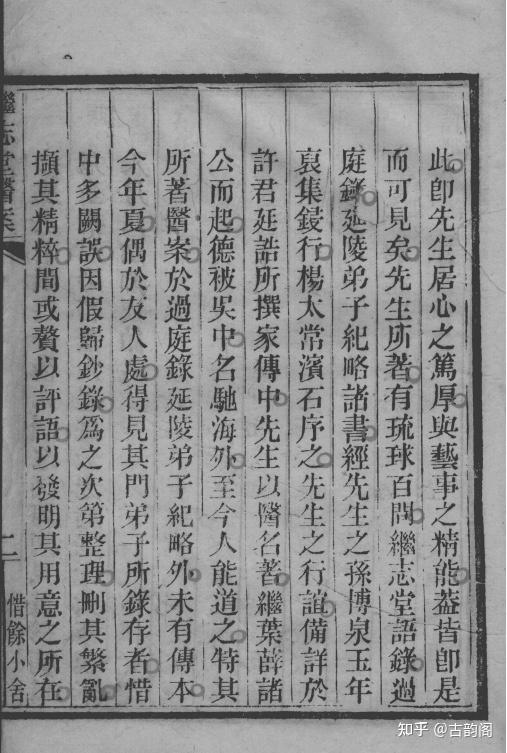 此卽先生居心之篤厚與藝事之精能葢皆卽是
而可見矣先生所著有琉球百問繼志堂語錄過
庭錄延陵弟子紀略諸書經先生之孫博泉玉年
裒集鋟行楊太常濱石序之先生之行誼備詳於
許君廷誥所撰家傳中先生以醫名著繼葉薛諸
公而起德被吳中名馳海外至今人能道之特其
所著醫案於過庭錄延陵弟子紀略外未有傳本
今年夏偶於友人處得見其門弟子所錄存者惜
中多闕誤因假歸鈔錄爲之次第整理刪其繁亂
擷其精粹間或贅以評語以發明其用意之所在
繼志堂醫案
二
惜餘小舍
知乎 @古韵阁